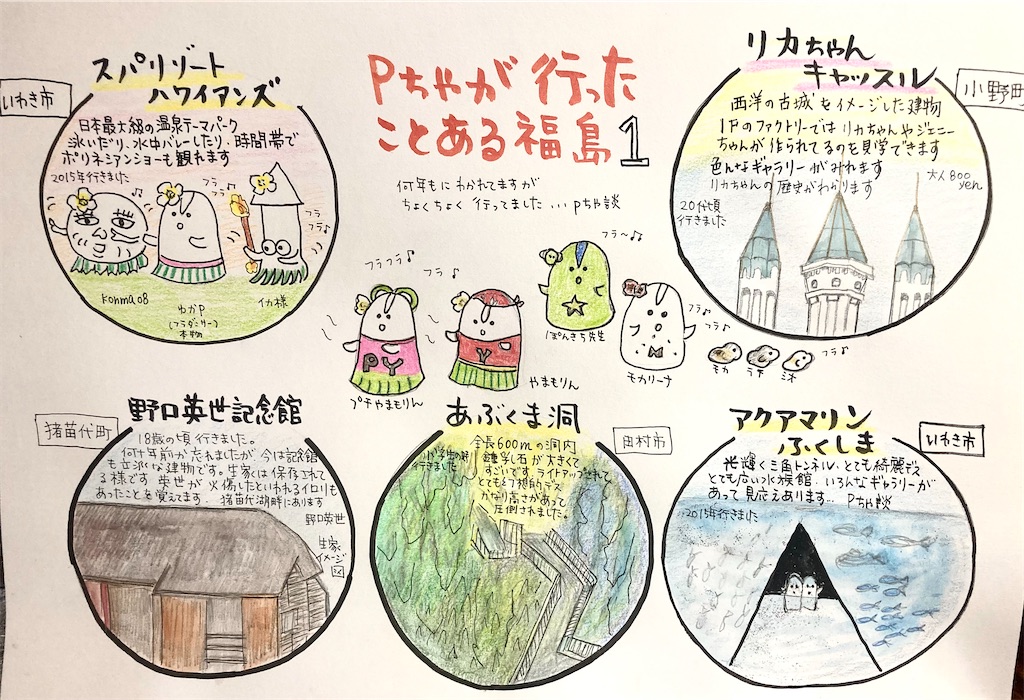 Pちゃが行った
ことある福島1
何年もにわかれてますが
ちょくちょく行ってました…Pちゃ談
スパリゾート
ハワイアンズ
いわき市
日本最大級の温泉テーマパーク
泳いだり、水中バレーしたり、時間帯で
ポリネシアンショーも観れます
2015年行きました
フラフラ♪
フラフラ♪
Konma08
ゆかP
(フラダンサー)
本物
イカ様
リカちゃん
キャッスル
小野町
西洋の古城をイメージした建物
1Fのファクトリーではリカちゃんやジェニー
ちゃんが作られてるのを見学できます
色んなギャラリーがみれます
リカちゃんの歴史がわかります
大人800
yen
20代頃
行きました
フラフラ♪
フラ♪
フラ〜♪
PY
プチやまもりん
Y
やまもりん
ぽんきち先生
M
モカリーナ
フラ♪
フラ♪
モカ
ラテ
ミオ
フラ♪
野口英世記念館
猪苗代町
18歳の頃行きました。
何十年前か忘れましたが、今は記念館
も立派な建物です。生家は保存されて
る様です 英世が火傷したといわれるイロリも
あったことを覚えてます。猪苗代湖畔にあります
野口英世
生家
イメージ
図
あぶくま洞
田村市
全長600mの洞内
鍾乳石が大きくて
すごいです。ライトアップされて
とても幻想的デス
かなり高さがあって
圧倒されました。
行きました
アクアマリン
ふくしま
いわき市
光輝く三角トンネル、とても綺麗デス
とても広い水族館、いろんなギャラリーが
あって見応えあります… Pちゃ談
2015年行きました